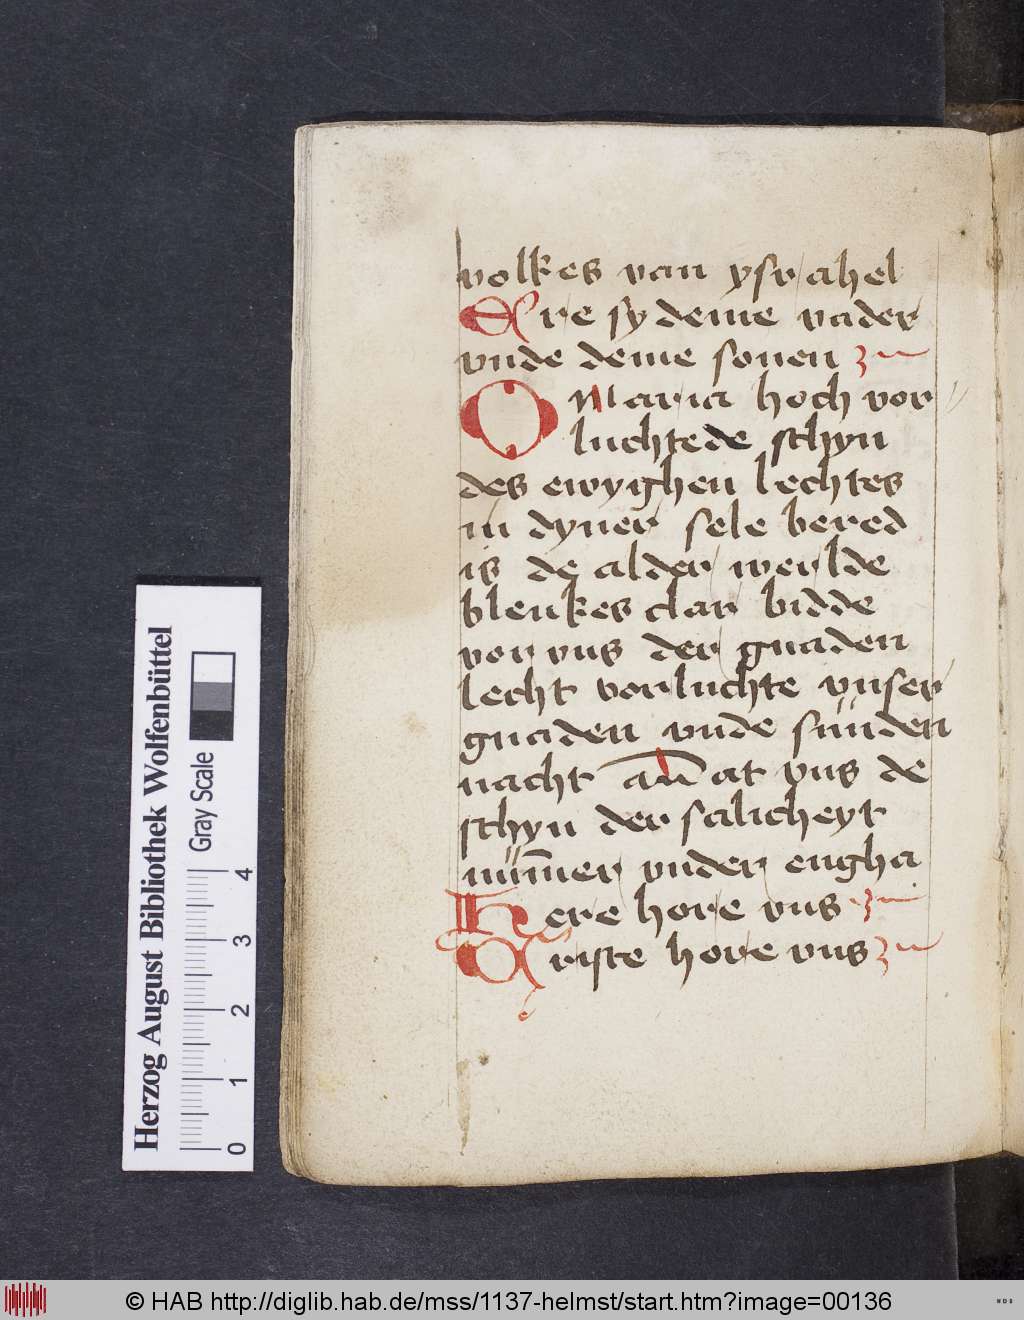 volkes van ysrahel
Ere sy deme vader
vnde deme sonen
O Maria hoch vor
luchtede schyn
des ewyghen lechtes
in dyner sele bered
is de alder werlde
blenkes clar bidde
vor vns der gnaden
lecht vorluchte vnser
gnaden vnde sunden
nacht at vns de
schyn der salicheyt
vnder engha
Here hore vns
Criste hore vns
Herzog August Bibliothek Wolfenbüttel
Gray Scale
0 1 2 3 4
© HAB http://diglib.hab.de/mss/1137-helmst/start.htm?image=00136